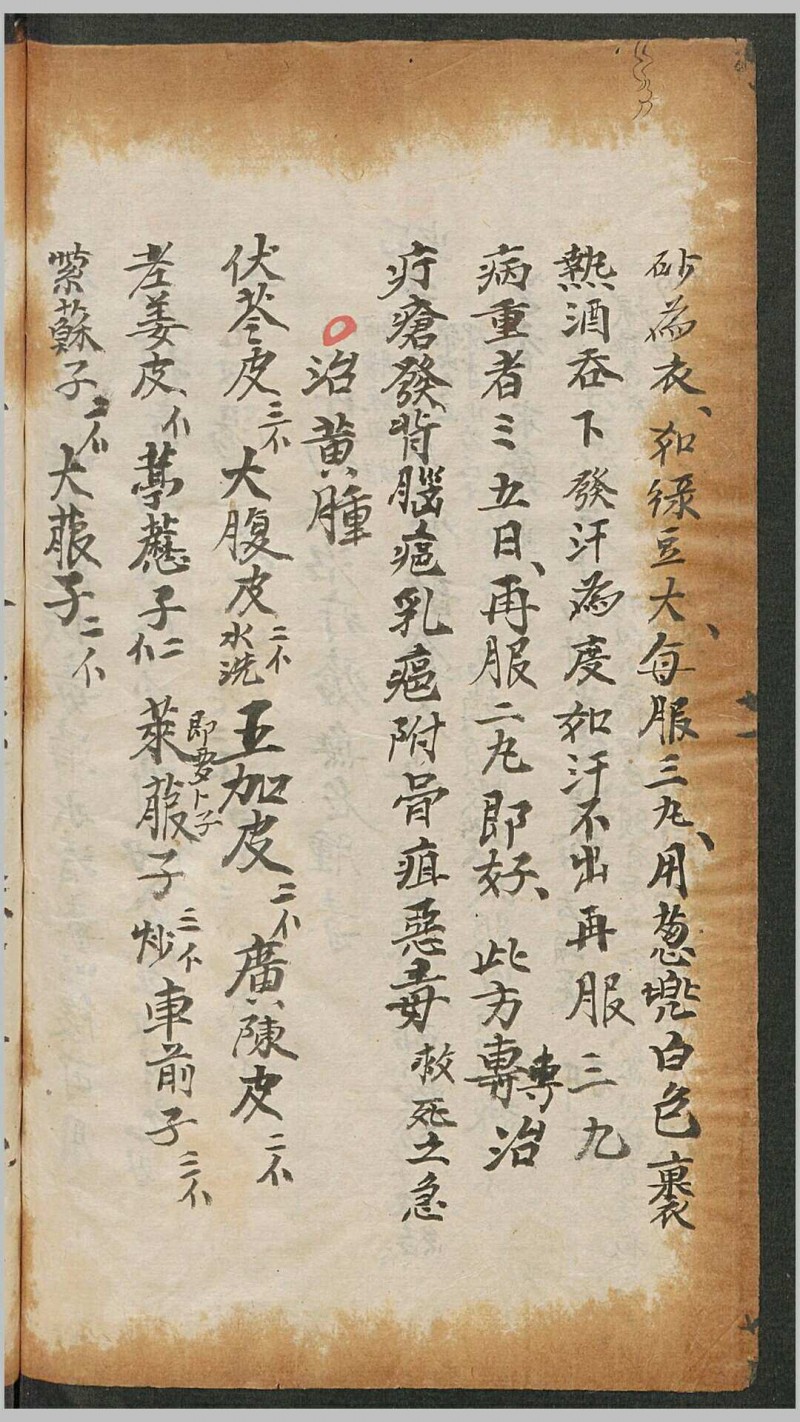 砂為衣、如绿豆大、每服三九、用葱兠白色裹
熱酒吞下發汗為度如汗不出再服三九
病重者三五日、再服二九即好、此方專治
疔瘡發背腦疽乳疽附骨疽惡毒救死之急
治黄腫
伏苓皮三个大腹皮二个水洗五加皮二个廣陳皮二个
姜皮、个葶藶子二个莱菔子即萝卜子三个炒車前子三个
紫蘇子二个大菔子二个